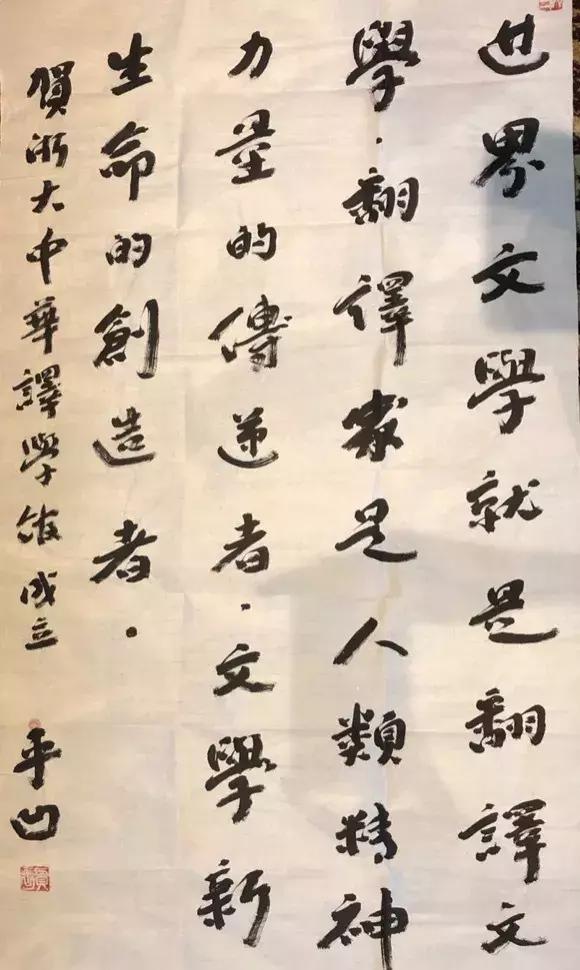 世界文學就是翻譯文
學·翻譯家是人類精神
力量的傳遞者·文學新
生命的創造者·
賀浙大中華譯學館成立
平凹